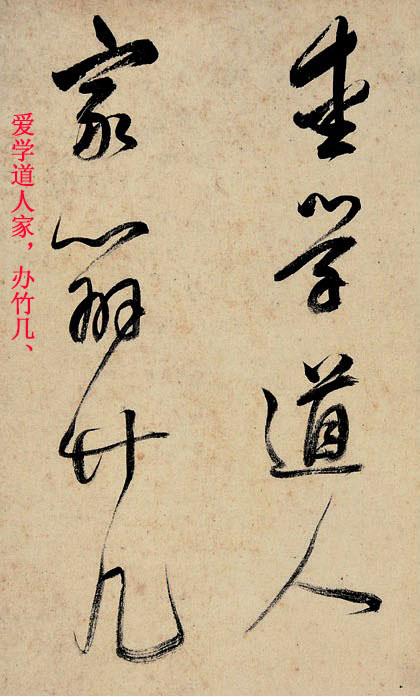 愛学道人
家辦竹几
爱学道人家，办竹几、